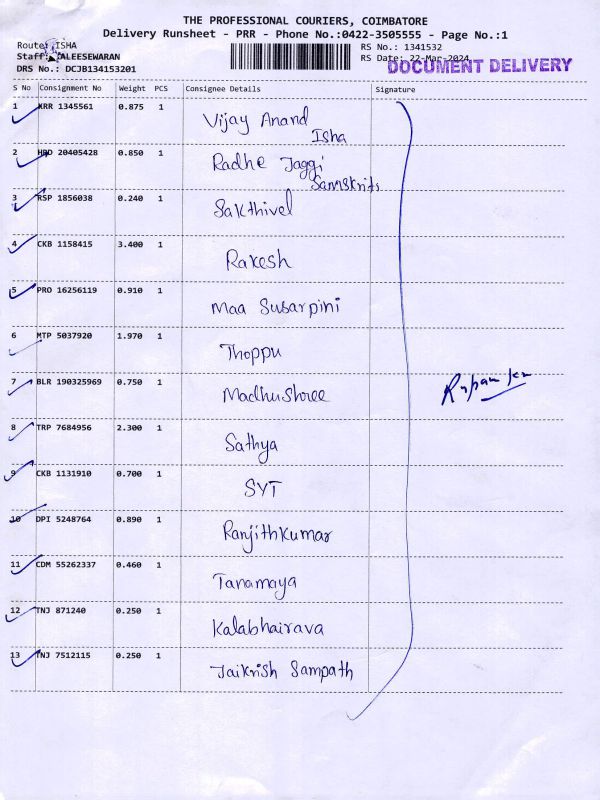 THE PROFESSIONAL COURIERS, COIMBATORE
Delivery Runsheet - PRR - Phone No.:0422-3505555 - Page No.:1
Route: ISHA
RS No.: 1341532
Staff: ALEESEWARAN
RS Date: 22-Mar-2024
DOCUMENT DELIVERY
DRS No.: DCJB134153201
S No Consignment No Weight PCS Consignee Details Signature
1 KRR 1345561 0.875 1 Vijay Anand
Isha
2 HRO 20405428 0.850 1 Radhe Jaggi
Samskriti
3 RSP 1856038 0.240 1 Sakthivel
4 CKB 1158415 3.400 1 Rakesh
5 PRO 16256119 0.910 1 Maa Susarpini
6 MTP 5037920 1.970 1 Thoppu
7 BLR 190325969 0.750 1 Madhushree
8 TRP 7684956 2.300 1 Sathya
9 CKB 1131910 0.700 1 SYT
10 DPI 5248764 0.890 1 Ranjithkumar
11 CDM 55262337 0.460 1 Tanamaya
12 TNJ 871240 0.250 1 Kalabhairava
13 TNJ 7512115 0.250 1 Jaikrish Sampath